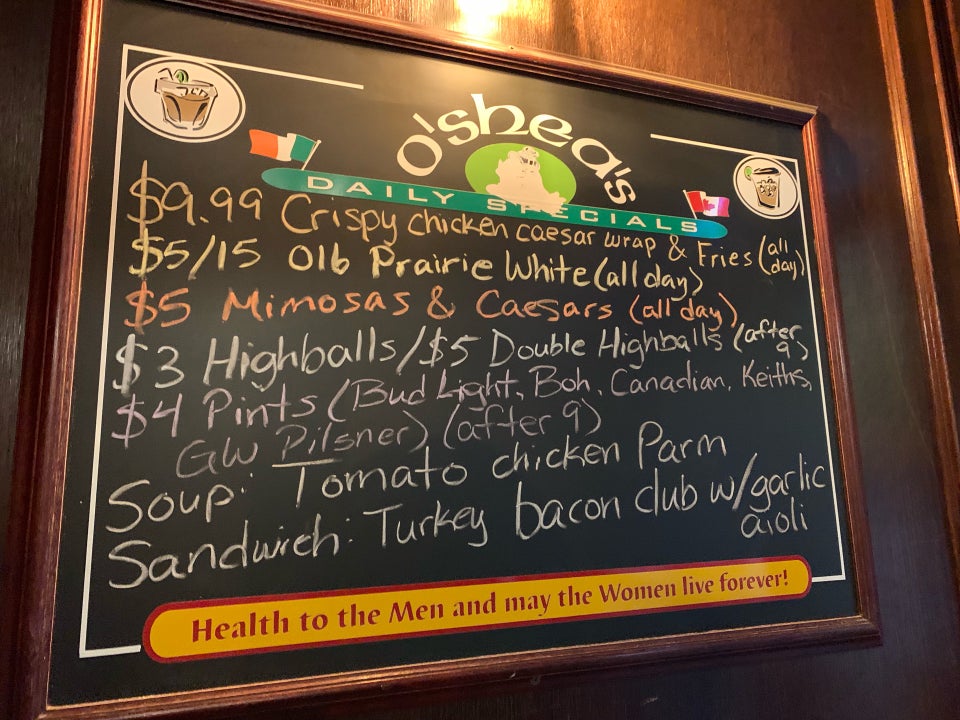 O'Shea's
DAILY SPECIALS
$9.99 Crispy chicken caesar wrap & Fries (all day)
$5/15 Olb Prairie White (all day)
$5 Mimosas & Caesars (all day)
$3 Highballs/$5 Double Highballs (after 9)
$4 Pints (Bud Light, Boh, Canadian, Keiths,
GW Pilsner) (after 9)
Soup: Tomato chicken Parm
Sandwich: Turkey bacon club w/garlic
aioli
Health to the Men and may the Women live forever!